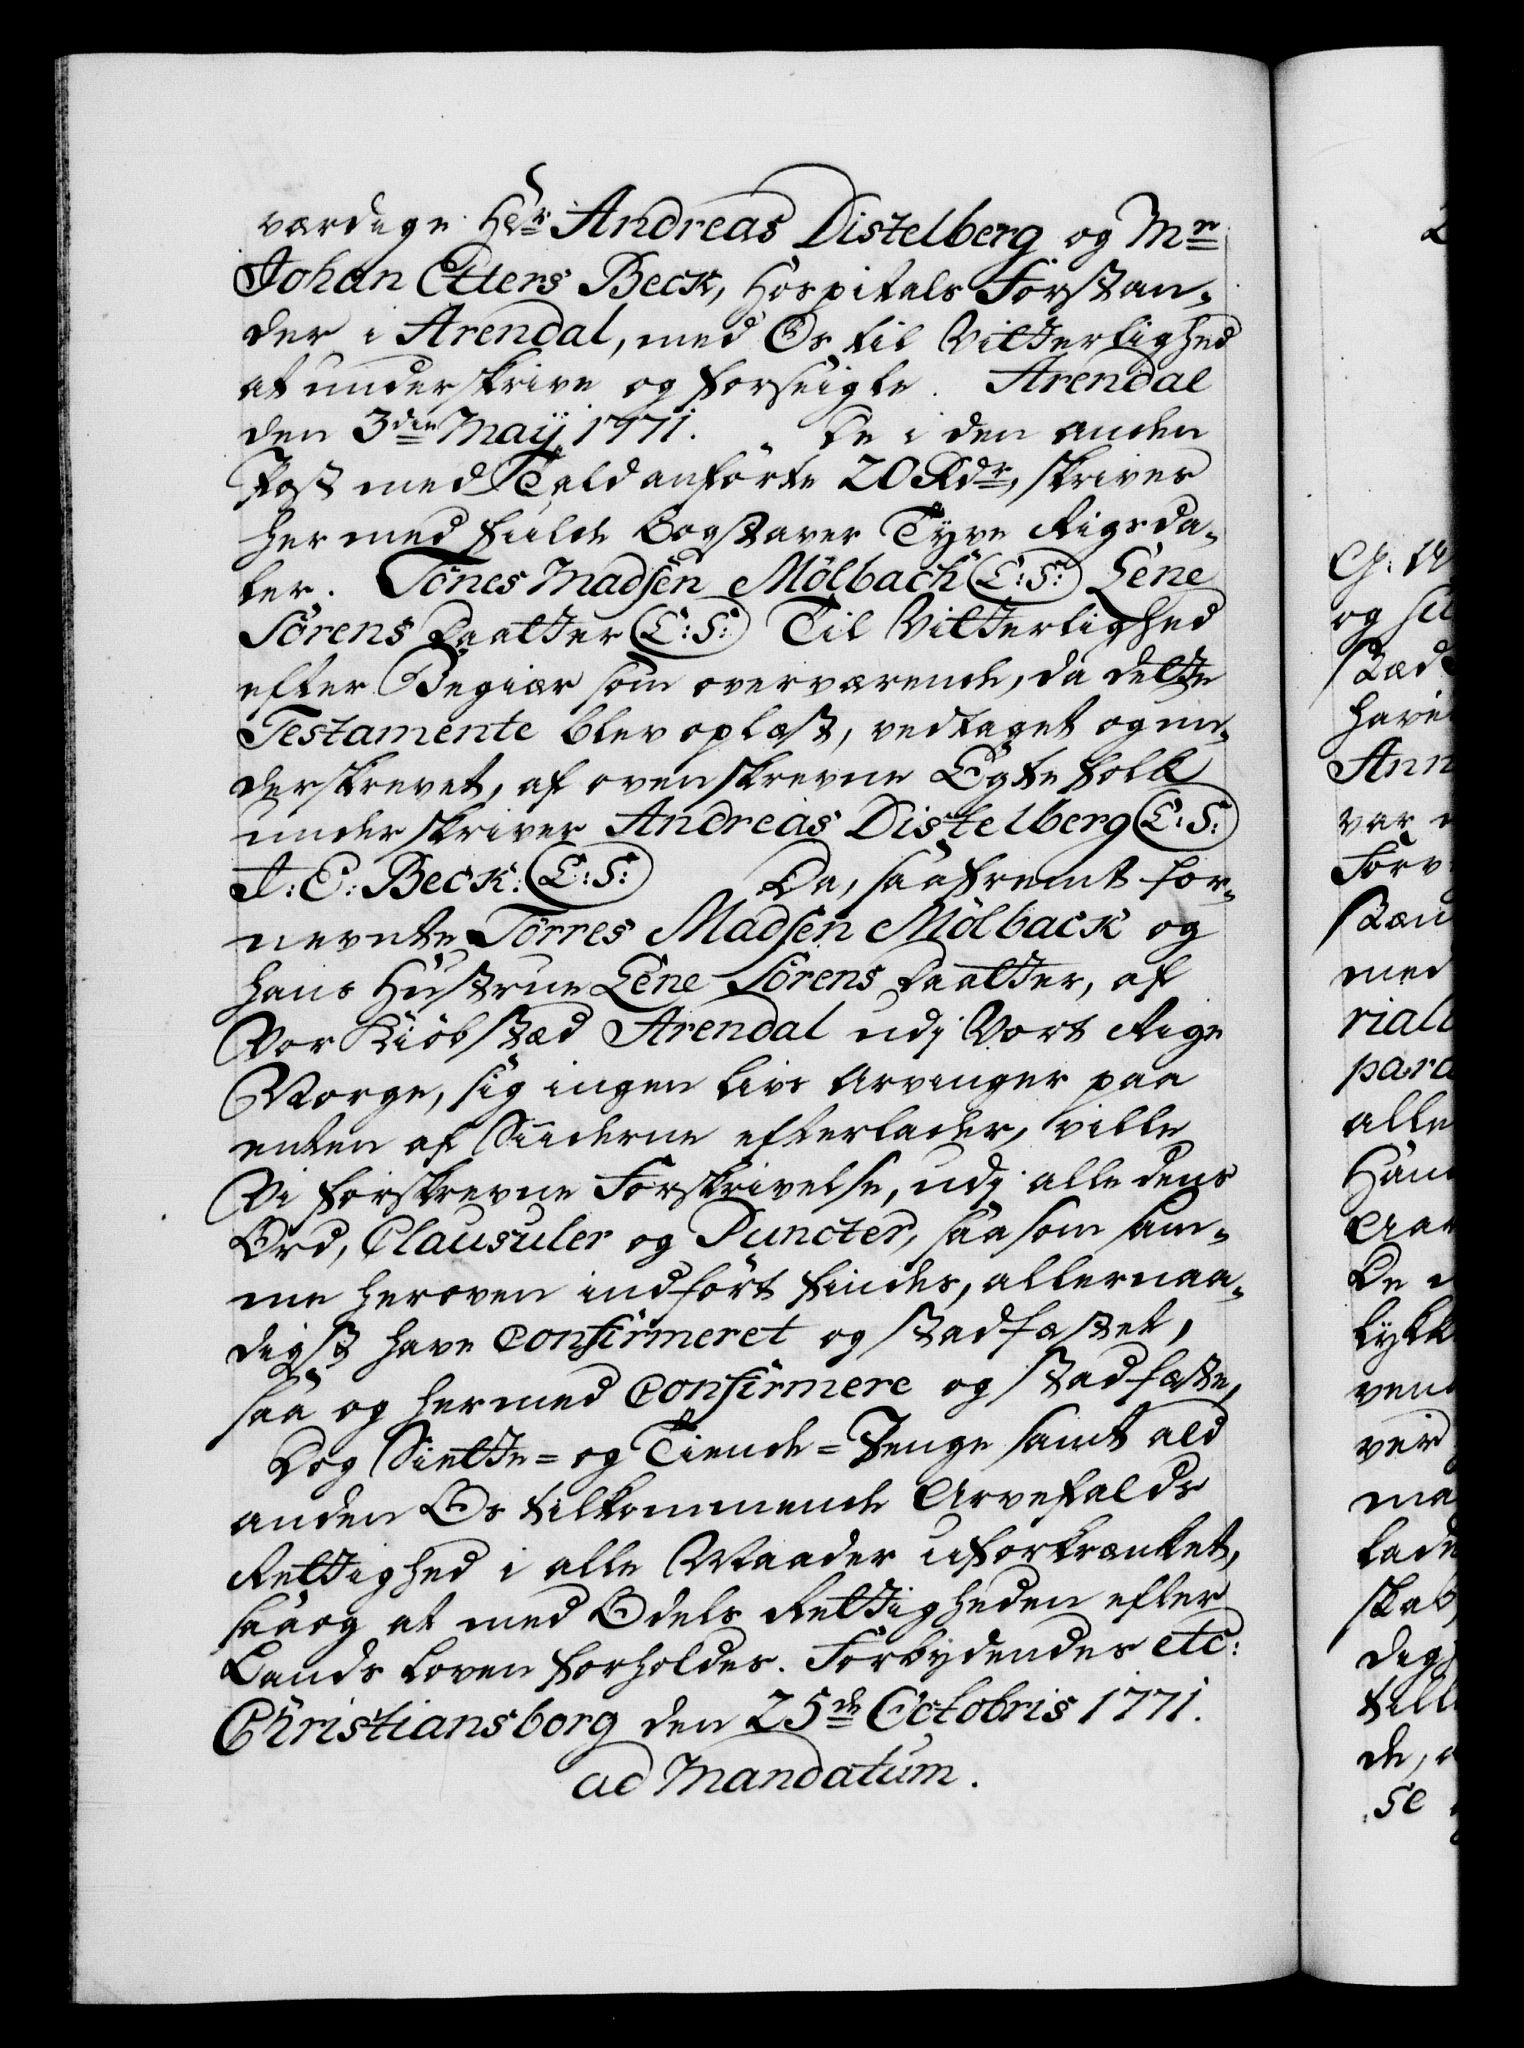 værdige Hr Andreas Distelberg og Mr
Johan Etters Beck, Hospitals Forstan-
der i Arendal, med Os til Vitterlighed
at underskrive og forseigle. Arendal
den 3die Maij 1771. De i den anden
Post med Tald anførte 20 Rdr, skrives
her med fulde Bogstaver Tyve Rigsda-
ler. Tönes Madsen Mölbach (L:S:) Lene
Sörens Daatter (L:S:) Til Vitterlighed
efter Begiær som overværende, da dette
Testamente blev oplæst, vedtaget og un-
derskrevet, af ovenskrevne Egtefolk
underskriver Andreas Distelberg (L:S:)
J: E: Beck. (L:S:) Da, saafremt for-
nevnte Törres Madsen Mölback og
hans Hustrue Lene Sörens Daatter, af
Vor Kiöbstæd Arendal udj Vort Rige
Norge, sig ingen Livs Arvinger paa
enten af Siiderne efterlader, ville
Vi forskrevne Forskrivelse, udj alle dens
Ord, Clausuler og Puncter, saasom sam-
me heroven indfört findes, allernaa-
digst have Confirmeret og stadfæstet,
saa og hermed Confirmere og stadfæste,
Dog Siette= og Tiende=Penge samt ald
anden Os tilkommende Arvefalds
Rettighed i alle Maader uforkrænket,
saa og at med Odels Rettigheden efter
Lands Loven forholdes. Forbydendes etc:
Christiansborg den 25de Octobris 1771.
ad Mandatum.